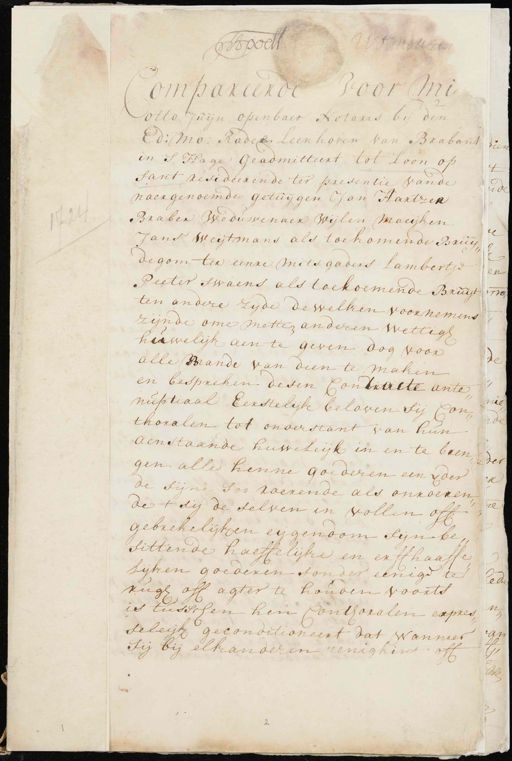 1724
Compareerde Voor Mij
Otto Juijn openbaer Notaris bij den
Ed: Mo: Rade Leenhoven van Brabant
in S Hage Geadmitteert tot Loon op
Sant resideerende ter presentie vande
naergenoemde getuijgen Jan Hartzen
Braber Weduwenaer Wijlen Maeijken
Jans Weijtmans als toekomende Bruij„
degom ter eenre mitsgaders Lambertje
Peeter Swaens als toekoemende Bruijt
ten andere zijde dewelken voornemens
zijnde ome mette anderen Wettegh
huwelijk aen te geven dog voor
alle Bande van dien te maken
en bespreken desen Contracte ante„
nuptiaal Eerstelijk beloven sij Con„
thoralen tot onderstant van hun
aenstaande huwelijk in en te bren
gen alle henne goederen een zoo
de sijne soo roerende als onroeren„
de t sij de selven in vollen off
gebrekelijken eijgendom sijn be„
sittende haeffelijke en erffhaeffe„
lijken goederen sonder eenigh te
rugh off agter te houden voorts
is tusschen hen Conthoralen expres„
selijk geconditioneert dat wanneer
sij bij elkanderen eenighins off
1
2